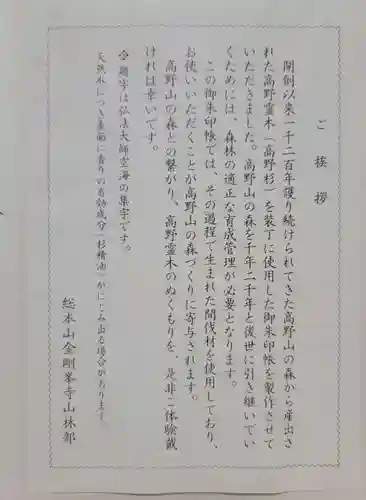 ご挨拶
開創以来一千二百年護り続けられてきた高野山の森から産出さ
れた高野霊木(高野杉)を装丁に使用した御朱印帳を製作させて
いただきました。高野山の森を千年二千年と後世に引き継いでい
くためには、森林の適正な育成管理が必要となります。
この御朱印帳では、その過程で生まれた間伐材を使用しており、
お使いいただくことが高野山の森づくりに寄与されます。
高野山の森との繋がり、高野霊木のぬくもりを、是非ご体験戴
ければ幸いです。
※題字は弘法大師空海の集字です。
天然木につき表面に香りの有効成分(杉精油)がにじみ出る場合があります。
総本山金剛峯寺山林部